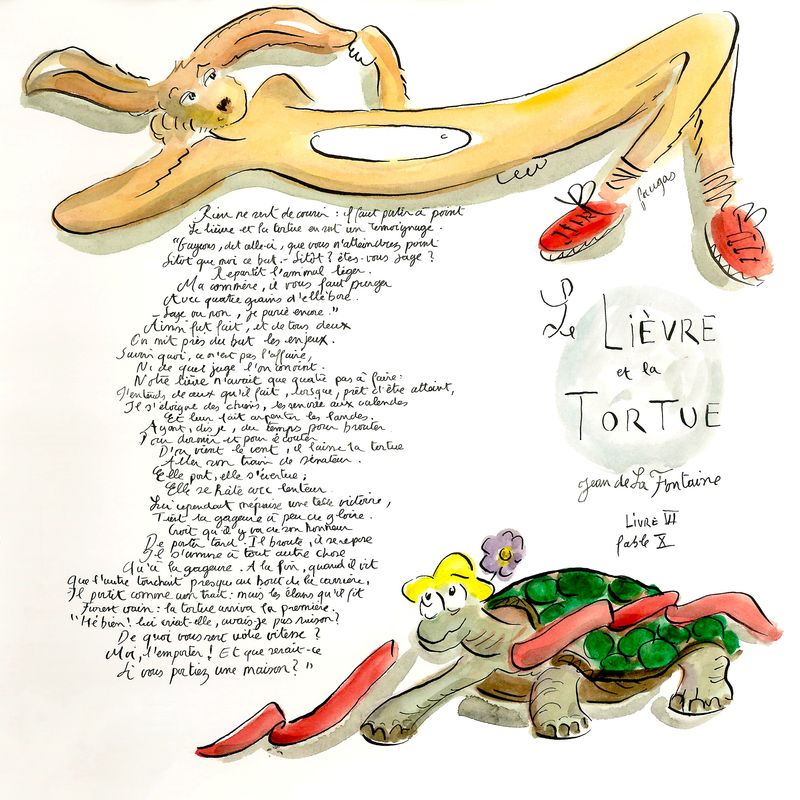 Rien ne sert de courir : il faut partir à point
Le lièvre et la tortue en sont un témoignage.
"Gageons, dit celle-ci, que vous n'atteindrez point
Sitôt que moi ce but. - Sitôt ? êtes-vous sage ?
Repartit l'animal léger.
Ma commère, il vous faut purger
Avec quatre grains d'ellébore.
- Sage ou non, je parie encore."
Ainsi fut fait, et de tous deux
On mit près du but les enjeux.
Savoir quoi, ce n'est pas l'affaire,
Ni de quel juge l'on convint.
Notre lièvre n'avait que quatre pas à faire :
J'entends de ceux qu'il fait, lorsque, prêt d'être atteint,
Il s'éloigne des chiens, les renvoie aux calendes
Et leur fait arpenter les landes.
Ayant, dis-je, du temps pour brouter
Pour dormir et pour écouter
D'où vient le vent, il laisse la tortue
Aller son train de sénateur.
Elle part, elle s'évertue ;
Elle se hâte avec lenteur.
Lui cependant méprise une telle victoire,
Tient la gageure à peu de gloire.
Croit qu'il y va de son honneur
De partir tard. Il broute, il se repose
Il s'amuse à tout autre chose
Qu'à la gageure. A la fin, quand il vit
Que l'autre touchait presque au bout de la carrière,
Il partit comme un trait : mais les élans qu'il fit
Furent vains : la tortue arriva la première.
"Hé bien ! lui criait-elle, avais-je pas raison ?
De quoi vous sert votre vitesse ?
Moi, l'emporter ! Et que serait-ce
Si vous portiez une maison ? "
fougas
Le LIÈVRE
et la
TORTUE
Jean de La Fontaine
LIVRE VI
fable X